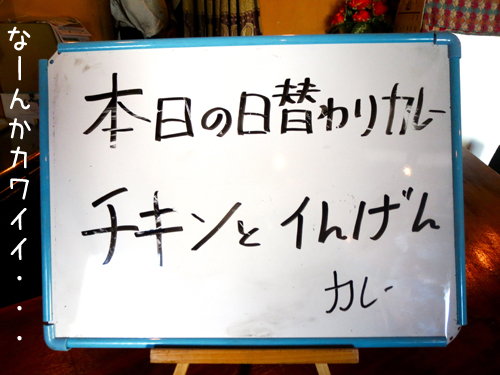 なーんかカワイイ・・・
本日の日替わりカレー
チキンとイんげん
カレー